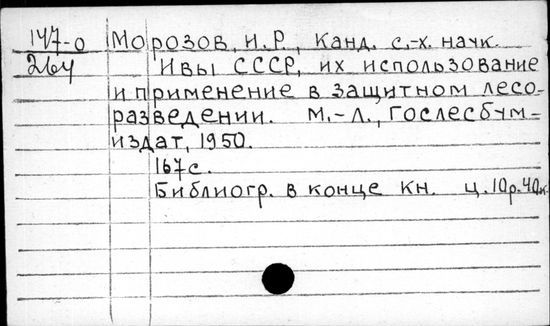 147-0 Морозов, И.Р., Канд. с.-х. наук.
264 Ивы СССР, их использование
и применение в защитном лесо-
разведении. М.-Л., Гослесбум-
издат, 1950.
167с.
Библиогр. в конце кн. ц.10р.40к.